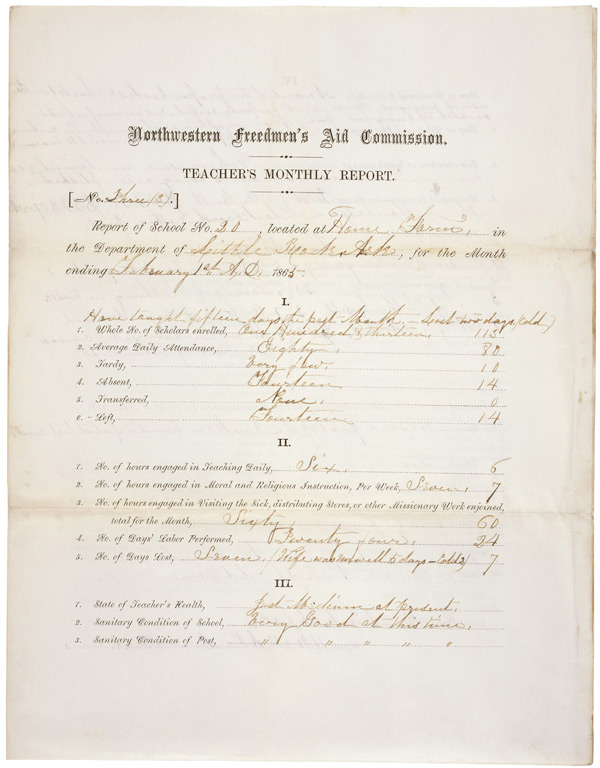 Northwestern Freedmen's Aid Commission.
TEACHER'S MONTHLY REPORT.
[No. Three (3).]
Report of School No. 20, located at Home Farm, in
the Department of Little Rock Ark, for the Month
ending February 1st A.D. 1865.
I.
Have taught fifteen days the past Month, - Lost two days, (cold)
1. Whole No. of Scholars enrolled, One Hundred & thirteen, 113
2. Average Daily Attendance, Eighty, 80
3. Tardy, Very few, 10
4. Absent, Fourteen 14
5. Transferred, None, 0
6. Left, Fourteen 14
II.
1. No. of hours engaged in Teaching Daily, Six, 6
2. No. of hours engaged in Moral and Religious Instruction, Per Week, Seven, 7
3. No. of hours engaged in Visiting the Sick, distributing Stores, or other Missionary Work enjoined,
total for the Month, Sixty, 60
4. No. of Days' Labor Performed, Twenty four, 24
5. No. of Days Lost, Seven, (Wife was unwell 5 days - Cold 2) 7
III.
1. State of Teacher's Health, Just Medium at present.
2. Sanitary Condition of School, Very Good at this time.
3. Sanitary Condition of Post, " " " " "